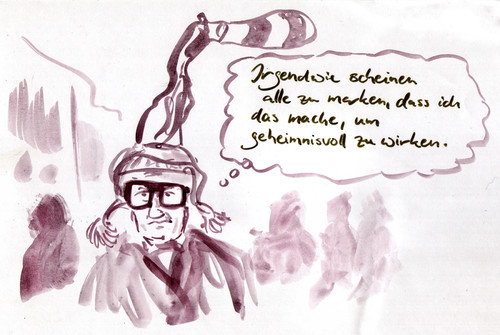 Irgendwie scheinen
alle zu merken, dass ich
das mache, um
geheimnisvoll zu wirken.